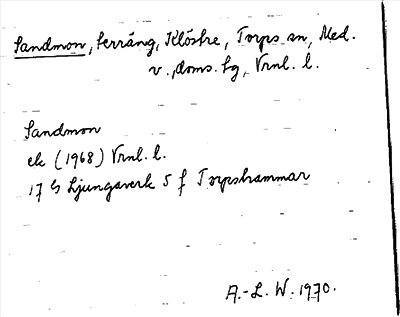 Sandmon, terräng, Klöstre, Torps sn, Med.
v., doms. hg, Vrnl. l.
Sandmon
ek (1968) Vrnl. l.
17 G Ljungaverk 5 f Torpshammar
A.-L. W. 1970.